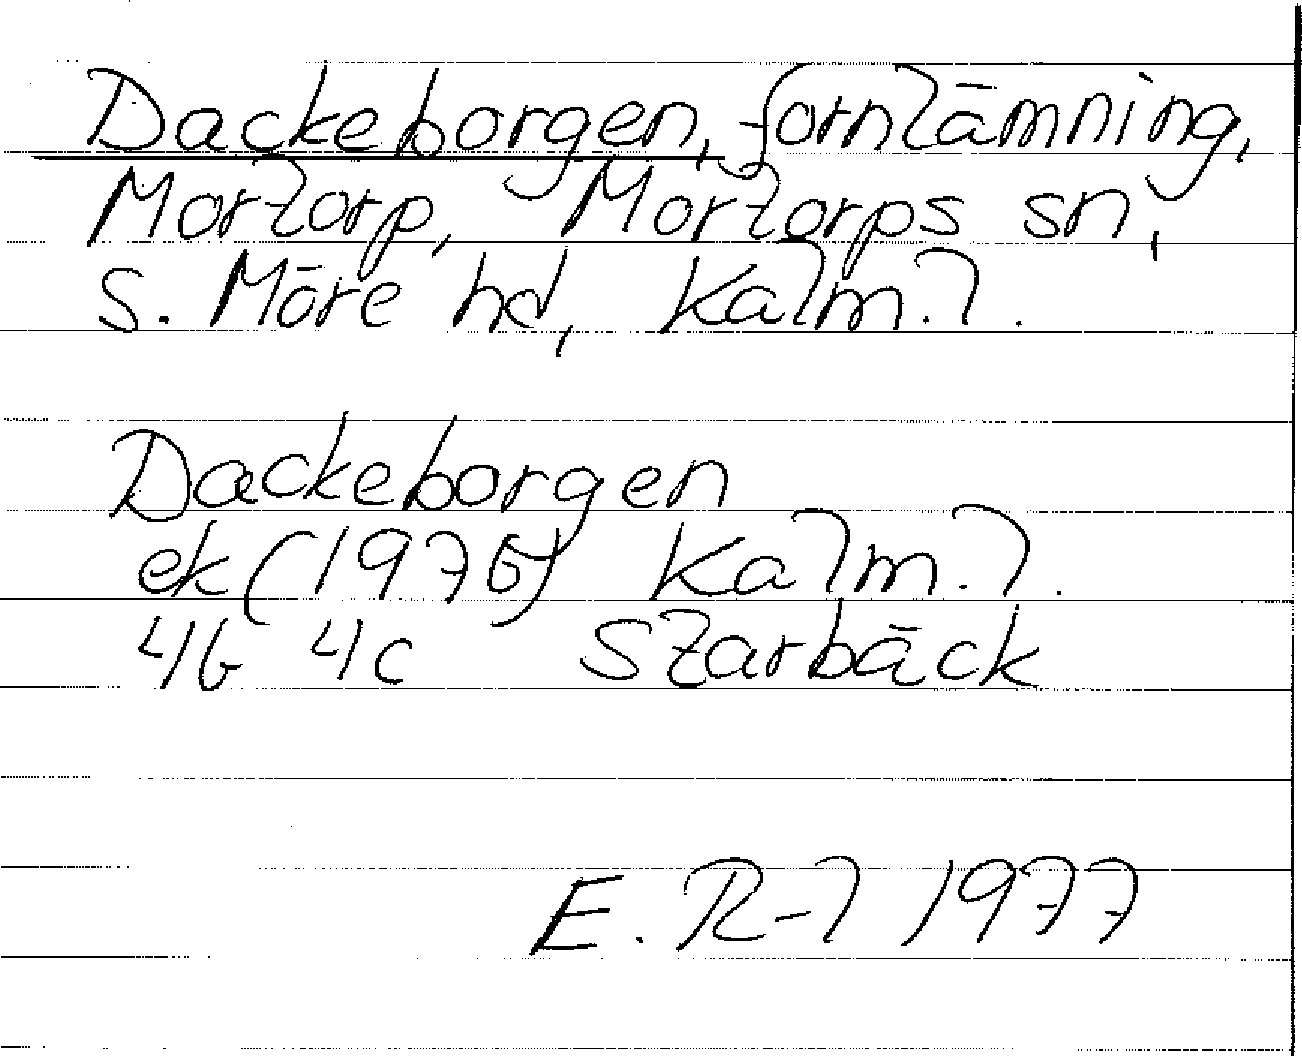 Dackeborgen, fornlämning,
Mortorp, Mortorps sn,
S. Möre hd, Kalm. l.
Dackeborgen
ek (1976) Kalm. l.
4G 4c Starbäck
E. R-l 1977